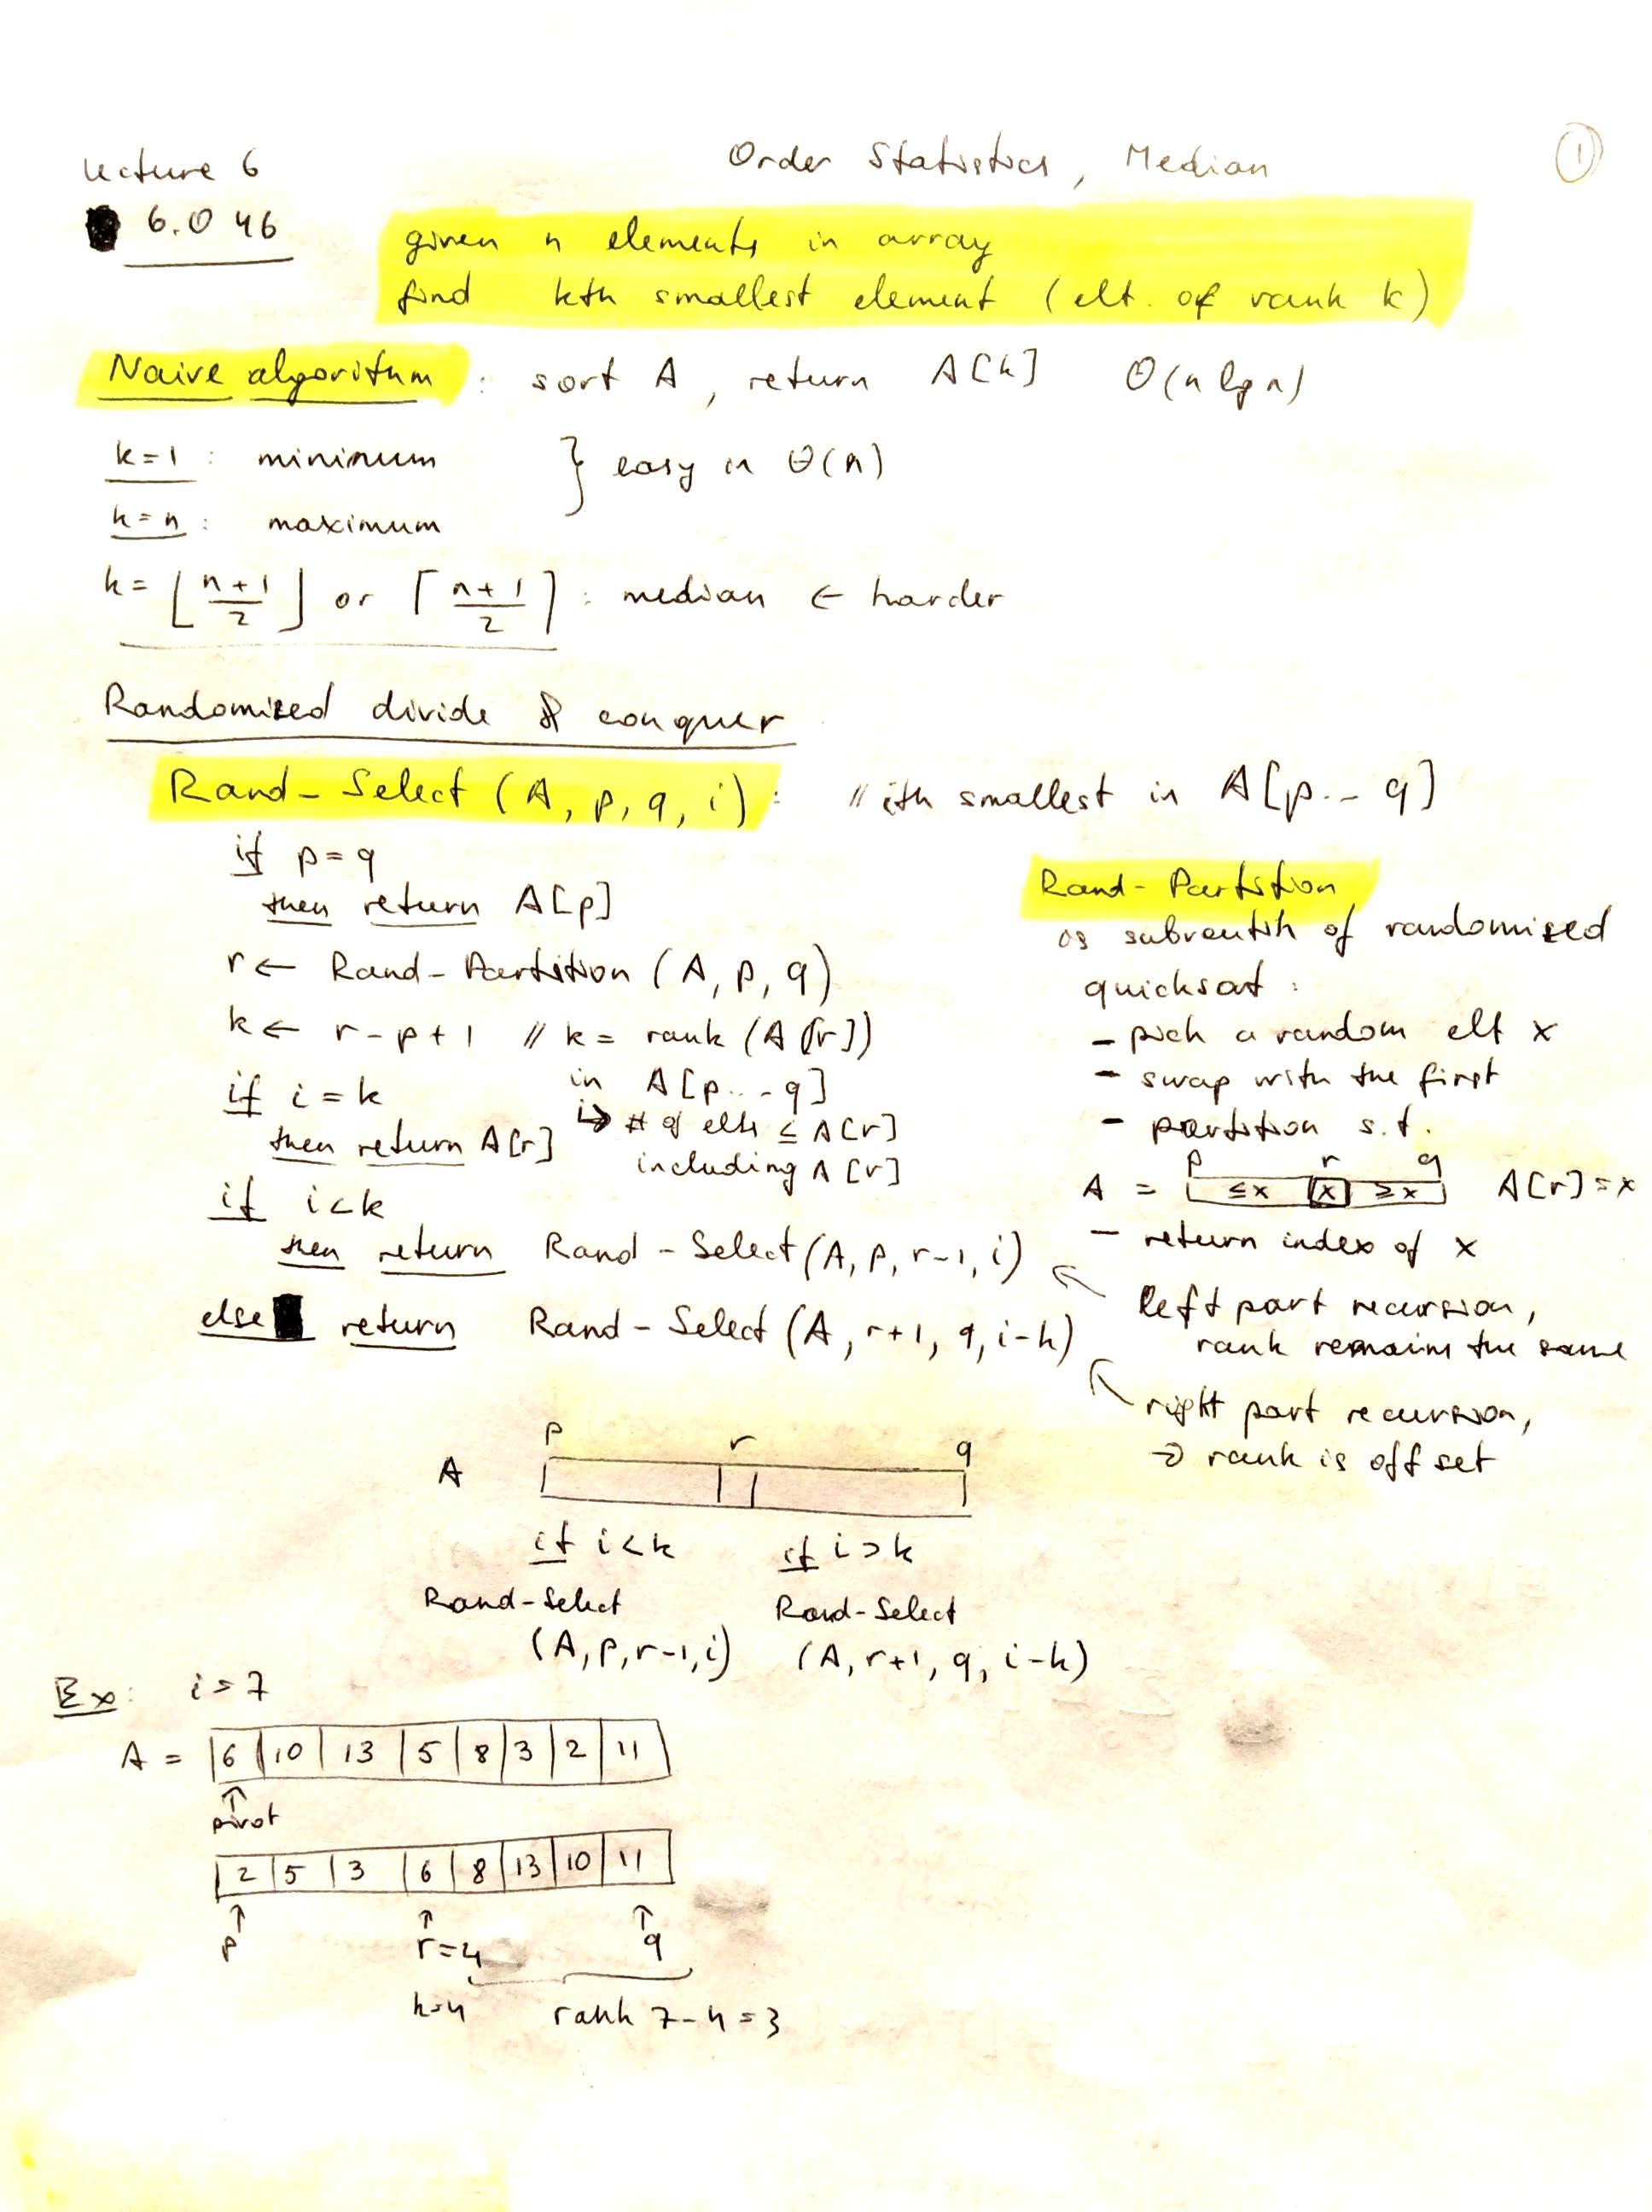 Lecture 6
Order Statistics, Median
1
6.046
given n elements in array
find kth smallest element (elt. of rank k)
Naive algorithm : sort A, return A[k] Θ(n lg n)
k=1 : minimum } easy in Θ(n)
k=n : maximum
k = ⌊(n+1)/2⌋ or ⌈(n+1)/2⌉ : median ← harder
Randomized divide & conquer
Rand-Select (A, p, q, i) : // ith smallest in A[p..q]
if p=q
then return A[p]
r ← Rand-Partition (A, p, q)
k ← r-p+1 // k = rank (A[r])
in A[p...q]
↳ # of elts ≤ A[r]
including A[r]
if i=k
then return A[r]
if i<k
then return Rand-Select (A, p, r-1, i)
else return Rand-Select (A, r+1, q, i-k)
Rand-Partition
as of randomized
quicksort :
- pick a random elt x
- swap with the first
- partition s.t.
p r q
A = ≤x x ≥x A[r]=x
- return index of x
left part recursion,
rank remains the same
right part recursion,
→ rank is offset
p r q
A
if i<k if i>k
Rand-Select Rand-Select
(A, p, r-1, i) (A, r+1, q, i-k)
Ex: i=7
A = 6 10 13 5 8 3 2 11
↑
pivot
2 5 3 6 8 13 10 11
↑ ↑ ↑
p r=4 q
k=4 rank 7-4=3